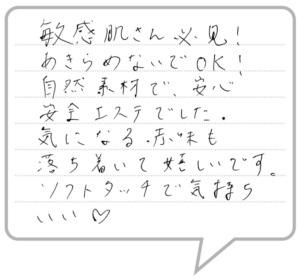 敏感肌さん必見!
あきらめないでOK!
自然素材で、安心
安全エステでした.
気になる赤味も
落ち着いて嬉しいです。
ソフトタッチで気持ち
いい♡